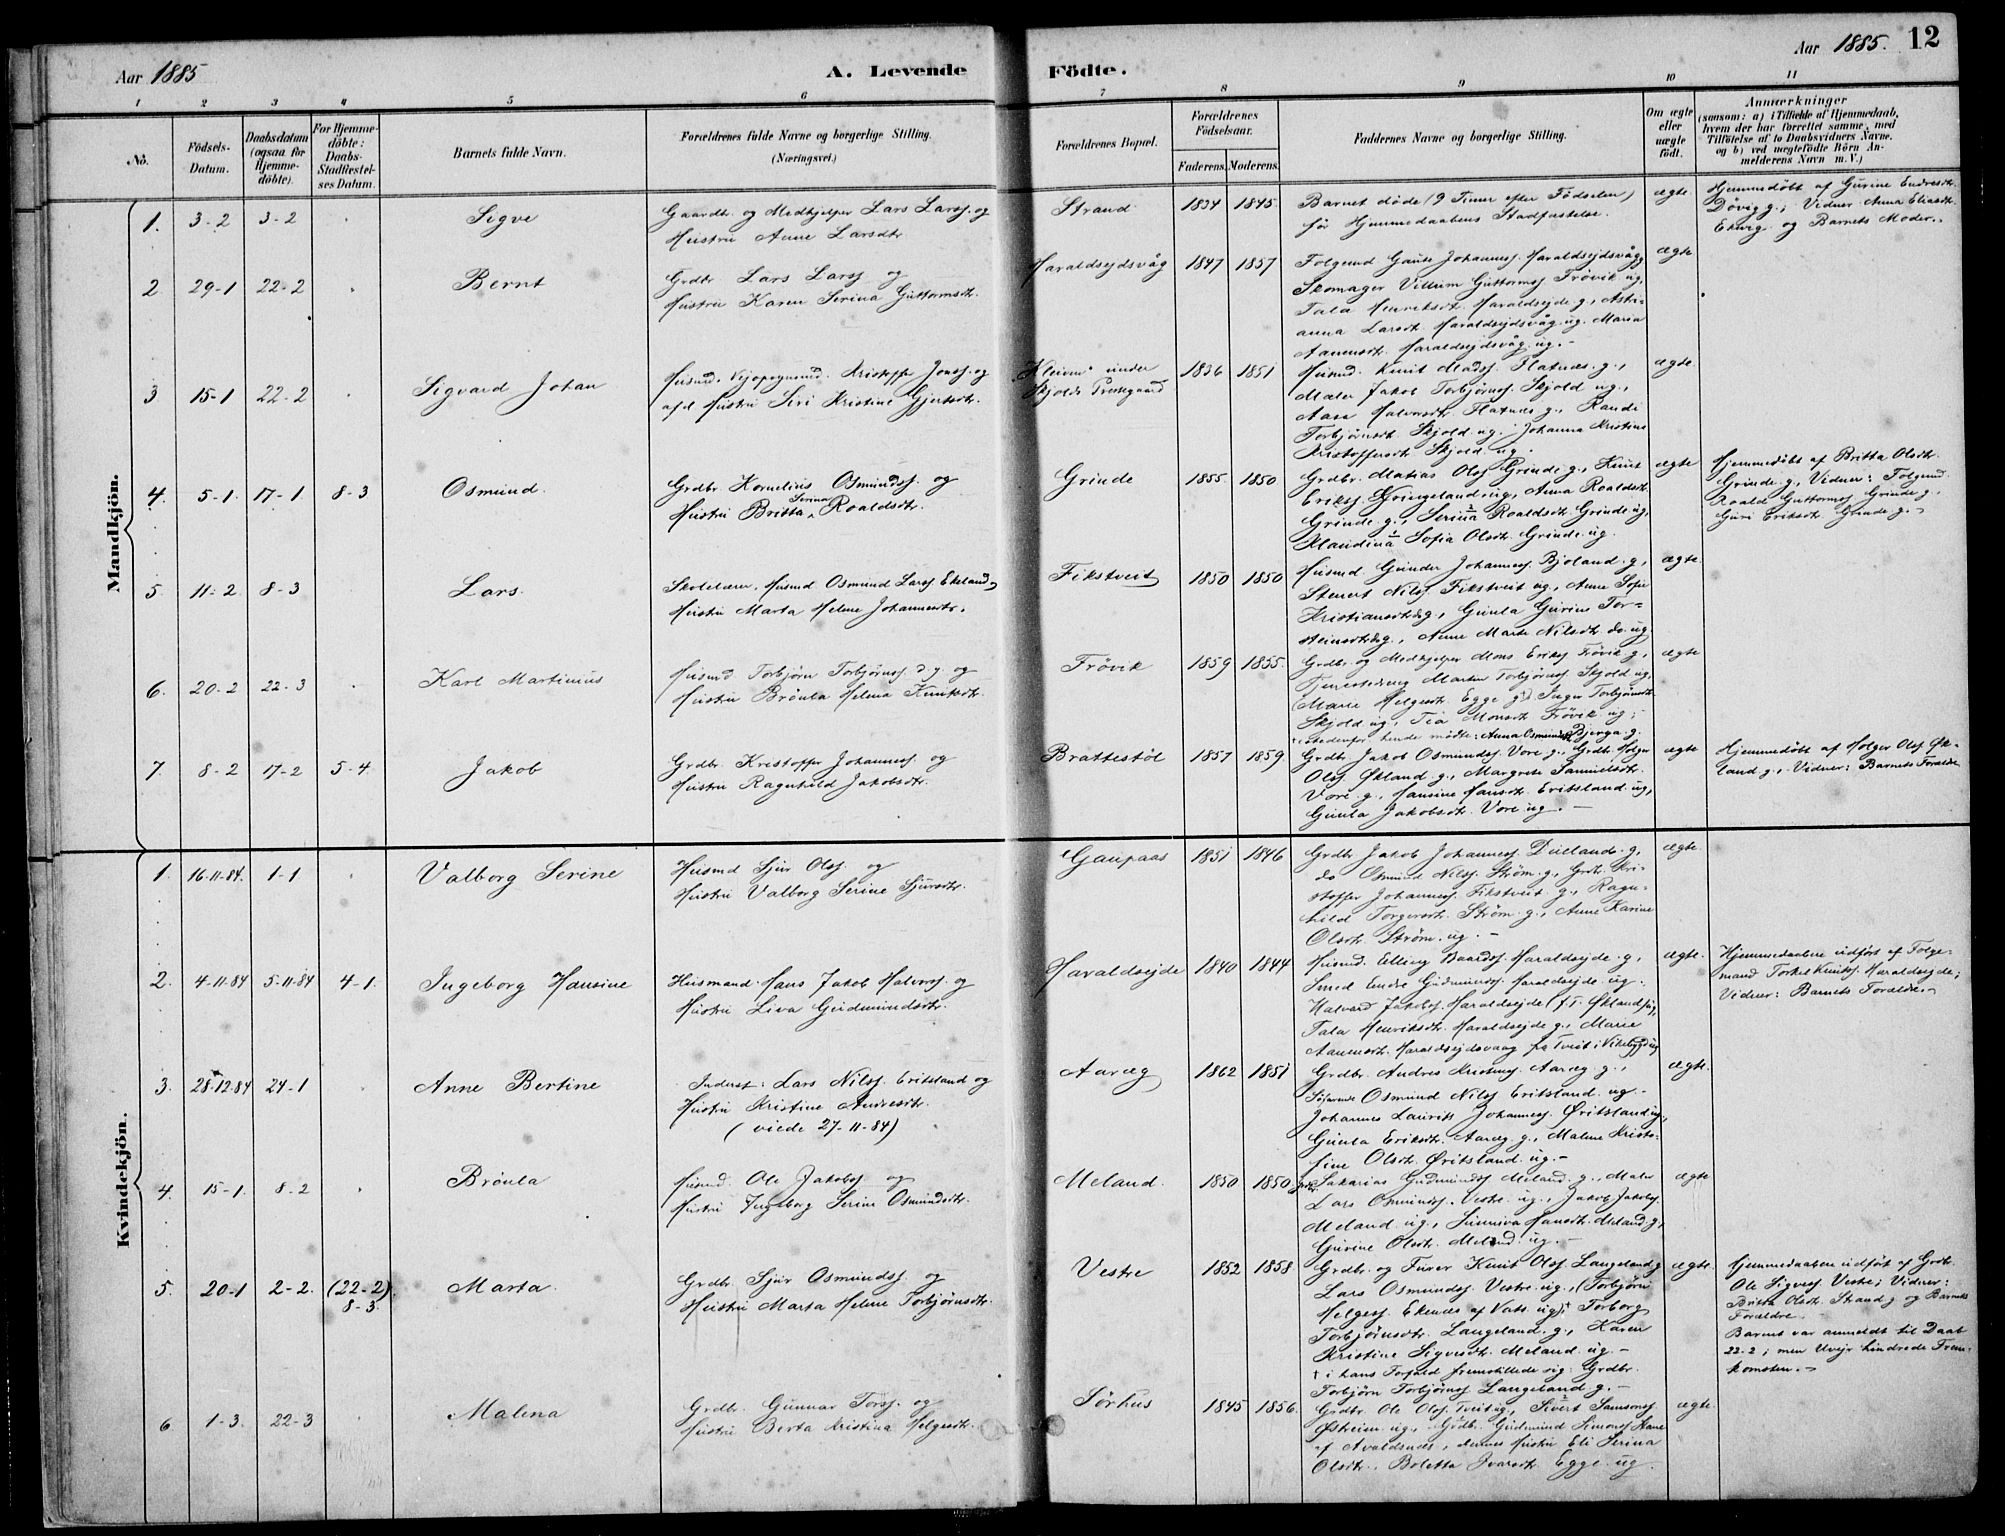 Aar 1885
A. Levende
Födte.
Aar 1885. 12
1 2 3 4 5 6 7 8 9 10 11
No.
Födsels-
Datum.
Daabsdatum
(ogsaa for
Hjemme-
döbte).
For Hjemme-
döbte:
Daabs-
Stadfæstel-
ses Datum.
Barnets fulde Navn.
Forældrenes fulde Navne og borgerlige Stilling.
(Næringsvei.)
Forældrenes Bopæl.
Forældrenes
Födselsaar.
Faderens. Moderens.
Faddernes Navne og borgerlige Stilling.
Om ægte
eller
uægte
født.
Anmærkninger
(saasom: a) i Tilfælde af Hjemmedaab,
hvem der har forrettet samme, med
Tilföielse af to Daabsvidners Navne,
og b) ved uægtefödte Börn An-
melderens Navn m. V.)
Mandkjön.
1. 3-2 3-2 Sigve
Gaardbr. og Medhjelper Lars Larss. og
Hustru Anne Larsdtr.
Strand. 1834 1845.
Barnet døde (9 Timer efter Fødselen)
før Hjemmedaabens Stadfæstelse.
ægte.
Hjemmedøbt af Gurine Endresdtr.
Døvig g.; Vidner Anna Eliasdtr.
og Barnets Moder.
2. 29-1 22-2 Bernt
Grdbr. Lars Larss. og
Hustru Karen Serina Guttormsdtr.
Haraldsejdsvåg 1847 1857
Folgemd Gaute Johanness. Haraldsejdsvåg g,
Skomager Villum Guttormss Frövik ug,
Tala Henriksdt. Haraldsejde g., Astri-
anna Larsdt. Haraldsejdsvåg ug. Maria
Aanensdt. Haraldsejdsvåg ug.-
ægte
3 15-1 22-2 Sigvard Johan
Husmd. Kristoffer Jonss. og
Hustru Siri Kristine Gjertsdtr.
"Kleiven" under
Skjolds Prestgaard
1836 1851
Husmd. Knut Madss. Flatnes g.,
Maler Jakob Torbjörnss. Skjold ug.,
Aasa Halvorsdtr. Flatnes g., Randi
Torbjörnsdt. Skjold ug. Johanna Kristine
Kristoffersdt. Skjold ug.
ægte
4. 5-1. 17-1 8-3 Osmund.
Grdbr. Kornelius Osmundss. og
Hustru Britta Serina Roaldsdtr.
Grinde 1855 1850
Grdbr. Matias Olss Grinde g., Knut
Erikss. Gringeland ug, Anna Roaldsdt.
Grinde g., Serina Roaldsdt. Grinde ug,
Klandina Sofia Olsdt. Grinde ug.
ægte
Hjemmedøbt af Britta Olsdt.
Grinde g., Vidner: Folgemd.
Roald Guttormss Grinde g.,
Guri Eriksdt. Grinde g.-
5 11-2 8-3 Lars.
Skolelærer, Husmd Osmund Larss Ekeland,
Hustru Marta Helene Johannesdtr.
Fikstveit 1850 1850
Husmd Gunder Johanness. Bjoland g.,
Stener Nilss Fikstveit ug, Anne Sofie
Kristiansdt. g., Gunla Gurine Tor-
steinsdt. g., Anne Marte Nilsdt. do. ug
ægte
6. 20-2 22-3 Karl Martinius
Husmd Torbjörn Torbjörnss d.y. og
Hustru Brönla Helena Knutsdt.
Frövik 1859 1855.
Grdbr. og Medhjelper Mons Erikss Frövik g.,
Tjenestedreng Martin Torbjörnss Skjold ug,
(Marie Helgesdt. Egge g.) Inger Torbjörnsdt.
Skjold ug, Tea Monsdt. Frövik ug;
istedenfor hende mödte: Anna Osmundsdt. Bjerga g.
ægte
7. 8-2 17-2 5-4. Jakob
Grdbr. Kristoffer Johanness og
Hustru Ragnhild Jakobsdtr.
Brattestöl 1857 1859
Grdbr. Jakob Osmundss. Vore g., Grdbr. Holger
Olss. Økland g., Margrete Samuelsdt.
Vore g., Hansine Hansdt. Eritsland ug,
Gunla Jakobsdt. Vore ug.-
ægte
Hjemmedøbt af Holger Olss Øk-
land g., Vidner: Barnets Forældre
Kvindekjön.
1. 16-11-84. 1-1 Valborg Serine
Husmd Sjur Olss. og
Hustru Valborg Serine Sjursdtr.
Gaupaas 1851 1846
Grdbr Jakob Johanness. Dueland g.,
do Osmund Nilss. Ström g., Grdb. Kri-
stoffer Johanness. Fikstveit g., Ragn-
hild Torgersdt. Ström g., Anne Karine
Olsdt. Ström ug.-
ægte.
2. 4-11-84 5-11-84 4-1. Ingeborg Hansine
Husmand Hans Jakob Halvorss. og
Hustru Liva Gudmundsdtr.
Haraldsejde 1840 1844
Husmd. Elling Baardss. Haraldsejde g,
Smed Endre Gudmundss. Haraldsejde ug.
Halvard Jakobss. Haraldsejde (f. T. Økland) ug,
Tala Henriksdt. Haraldsejde g., Marie
Aanensdt. Haraldsejdsvaag fra Tveit i Vikebygd ug
ægte.
Hjemmedaaben udført af Folge-
mand Torkel Knutss. Haraldsejde;
Vidner: Barnets Forældre.-
3. 28-12-84 24-1 Anne Bertine
Inderst: Lars Nilss. Eritsland og
Hustru Kristine Andresdtr.
(viede 27-11-84)
Aaræg 1862 1851
Grdbr. Andres Aaræg g.,
Osmund Nilss Eritsland ug.-
Johannes Laurits Johanness. Øritsland ug.,
Gunla Eriksdt. Aaræg g., Malene Kristo-
fine Olsdt. Øritsland ug.-
ægte.
4. 15-1. 8-2 Brönla
Husmd. Ole Jakobss og
Hustru Ingeborg Serine Osmundsdtr.
Meland. 1850 1850
Sakarias Gudmundss Meland g., Maler
Lars Osmundss. Vestre ug., Jakob Jakobss.
Meland ug., Sunniva Hansdt. Meland g.,
Gurine Olsdt. Meland ug.-
ægte
5. 20-1 2-2. (22-2) 8-3. Marta.
Grdbr. Sjur Osmundss. og
Hustru Marta Helene Torbjörnsdtr.
Vestre 1852 1858
Grdbr. og Furer Knut Olss. Langeland g
Lars Osmundss. Vestre ug., (Torbjörn
Helgess. Ekenes af Vats ug)† Torborg
Torbjörnsdtr. Langeland g., Karen
Kristine Sigvesdt. Meland ug.-
† i hans Forfald fremstillede sig: Grdbr.
Torbjörn Torbjörnss Langeland g.-
ægte.
Hjemmedaaben udført af Grdb.
Ole Sigvess Vestre; Vidner:
Britta Olsdt. Strand g og Barnets
Forældre.
Barnet var anmeldt til Daab
22-2; men Uvejr hindrede Frem-
komsten.-
6 1-3. 22-3 Malena
Grdbr. Gunnar Torss. og
Hustru Berta Kristina Helgesdtr.
Sörhus 1845 1856.
Grdbr. Ole Olss. Tveit ug, Sivert Samsonss.
Østreim ug., Grdb. Gudmund Simonss.
af Avaldsnes, dennes Hustru Eli Serina
Olsdtr., Boletta Ivarsdt. Egge ug.
ægte.